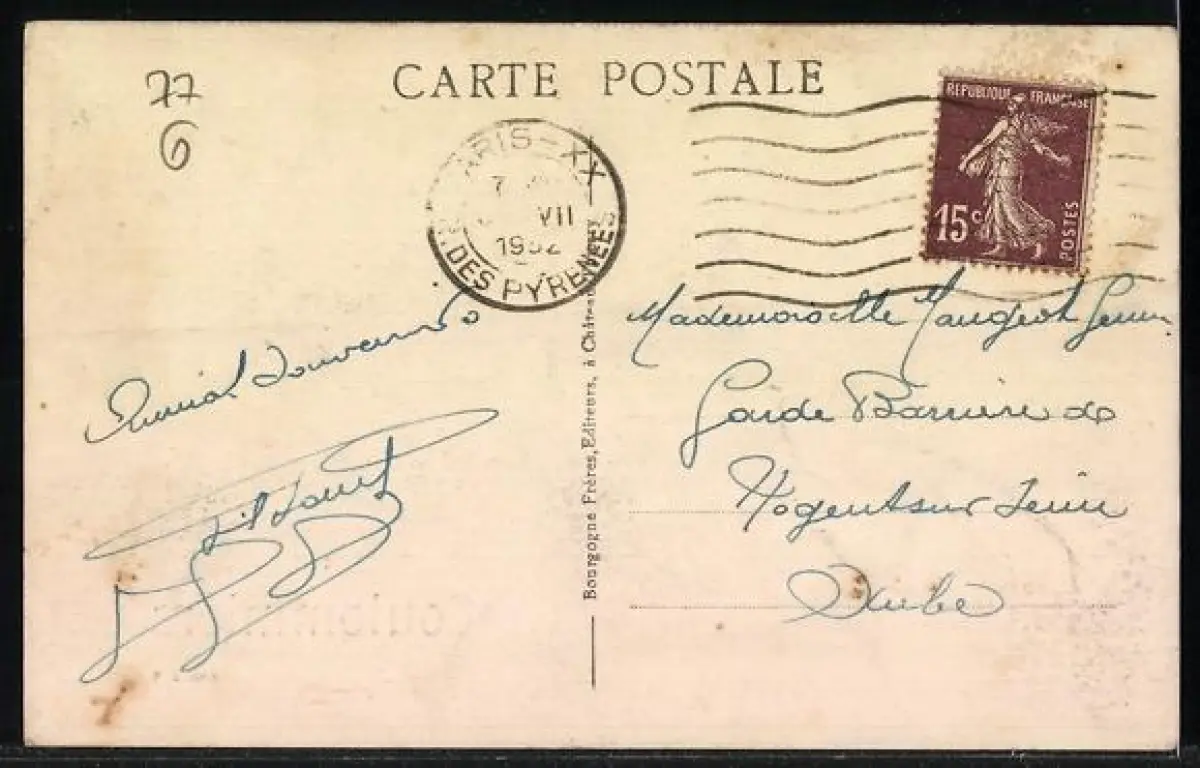 77
6
CARTE POSTALE
PARIS - XX
7
VII
1932
R. DES PYRENEES
REPUBLIQUE FRANÇAISE
15c
POSTES
Amical Souvenir
Mademoiselle Mangeot
Garde Barrière de
Nogent sur Seine
Aube
Bourgogne Frères, Editeurs, à